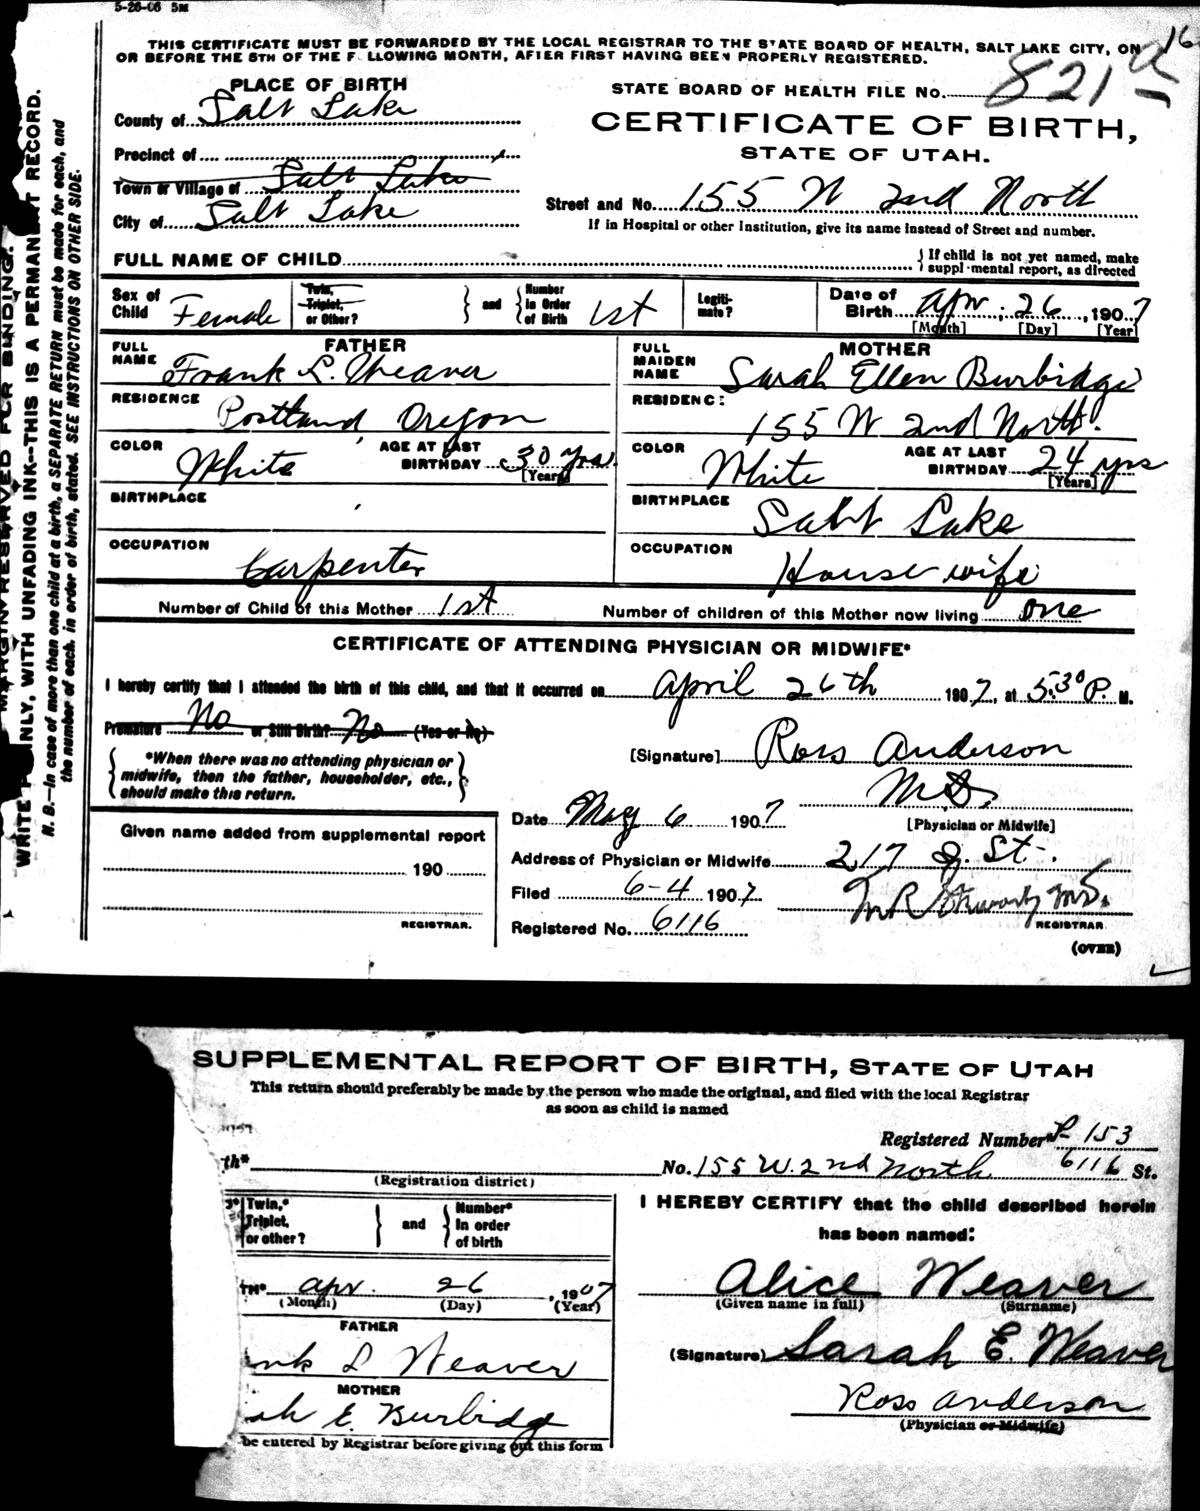 5-26-06 5M
16
THIS CERTIFICATE MUST BE FORWARDED BY THE LOCAL REGISTRAR TO THE STATE BOARD OF HEALTH, SALT LAKE CITY, ON
OR BEFORE THE 5TH OF THE F LLOWING MONTH, AFTER FIRST HAVING BEEN PROPERLY REGISTERED.
PLACE OF BIRTH
STATE BOARD OF HEALTH FILE NO. 821
County of Salt Lake
CERTIFICATE OF BIRTH,
STATE OF UTAH.
Precinct of
Town or Village of Salt Lake
Street and No. 155 W 2nd North
City of Salt Lake
If in Hospital or other Institution, give its name instead of Street and number.
FULL NAME OF CHILD
If child is not yet named, make
suppl mental report, as directed
Sex of Child Female
Twin, Triplet, or Other?
and
Number in Order of Birth 1st
Legiti-mate?
Date of Birth Apr. 26, 1907
[Month] [Day] [Year]
FATHER
MOTHER
FULL NAME Frank L. Weaver
FULL MAIDEN NAME Sarah Ellen Burbidge
RESIDENCE Portland, Oregon
RESIDENC: 155 W 2nd North.
COLOR White AGE AT LAST BIRTHDAY 30 yrs. [Years]
COLOR White AGE AT LAST BIRTHDAY 24 yrs [Years]
BIRTHPLACE
BIRTHPLACE Salt Lake
OCCUPATION Carpenter
OCCUPATION House wife
Number of Child of this Mother 1st
Number of children of this Mother now living one
CERTIFICATE OF ATTENDING PHYSICIAN OR MIDWIFE*
I hereby certify that I attended the birth of this child, and that it occurred on April 26th 1907, at 5:30 P. M.
Premature No or Still Birth? No (Yes or No)
*When there was no attending physician or
midwife, then the father, householder, etc.,
should make this return.
[Signature] Ross Anderson
M.D.
[Physician or Midwife]
Date May 6 1907
Given name added from supplemental report
190
REGISTRAR.
Address of Physician or Midwife 217 J. St.
Filed 6-4 1907
Registered No. 6116
REGISTRAR
(OVER)
MARGIN RESERVED FOR BINDING.
WRITE PLAINLY, WITH UNFADING INK--THIS IS A PERMANENT RECORD.
N. B.--In case of more than one child at a birth, a SEPARATE RETURN must be made for each, and
the number of each, in order of birth, stated. SEE INSTRUCTIONS ON OTHER SIDE.
SUPPLEMENTAL REPORT OF BIRTH, STATE OF UTAH
This return should preferably be made by the person who made the original, and filed with the local Registrar
as soon as child is named
Registered Number P-153
6116
th* No. 155 W. 2nd North St.
(Registration district)
Twin,* Triplet, or other?
and
Number* In order of birth
I HEREBY CERTIFY that the child described herein
has been named:
TH* Apr. 26, 1907
(Month) (Day) (Year)
Alice Weaver
(Given name in full) (Surname)
FATHER
nk L Weaver
(Signature) Sarah E. Weaver
MOTHER
ah E Burbidg
Ross Anderson
(Physician or Midwife)
be entered by Registrar before giving out this form